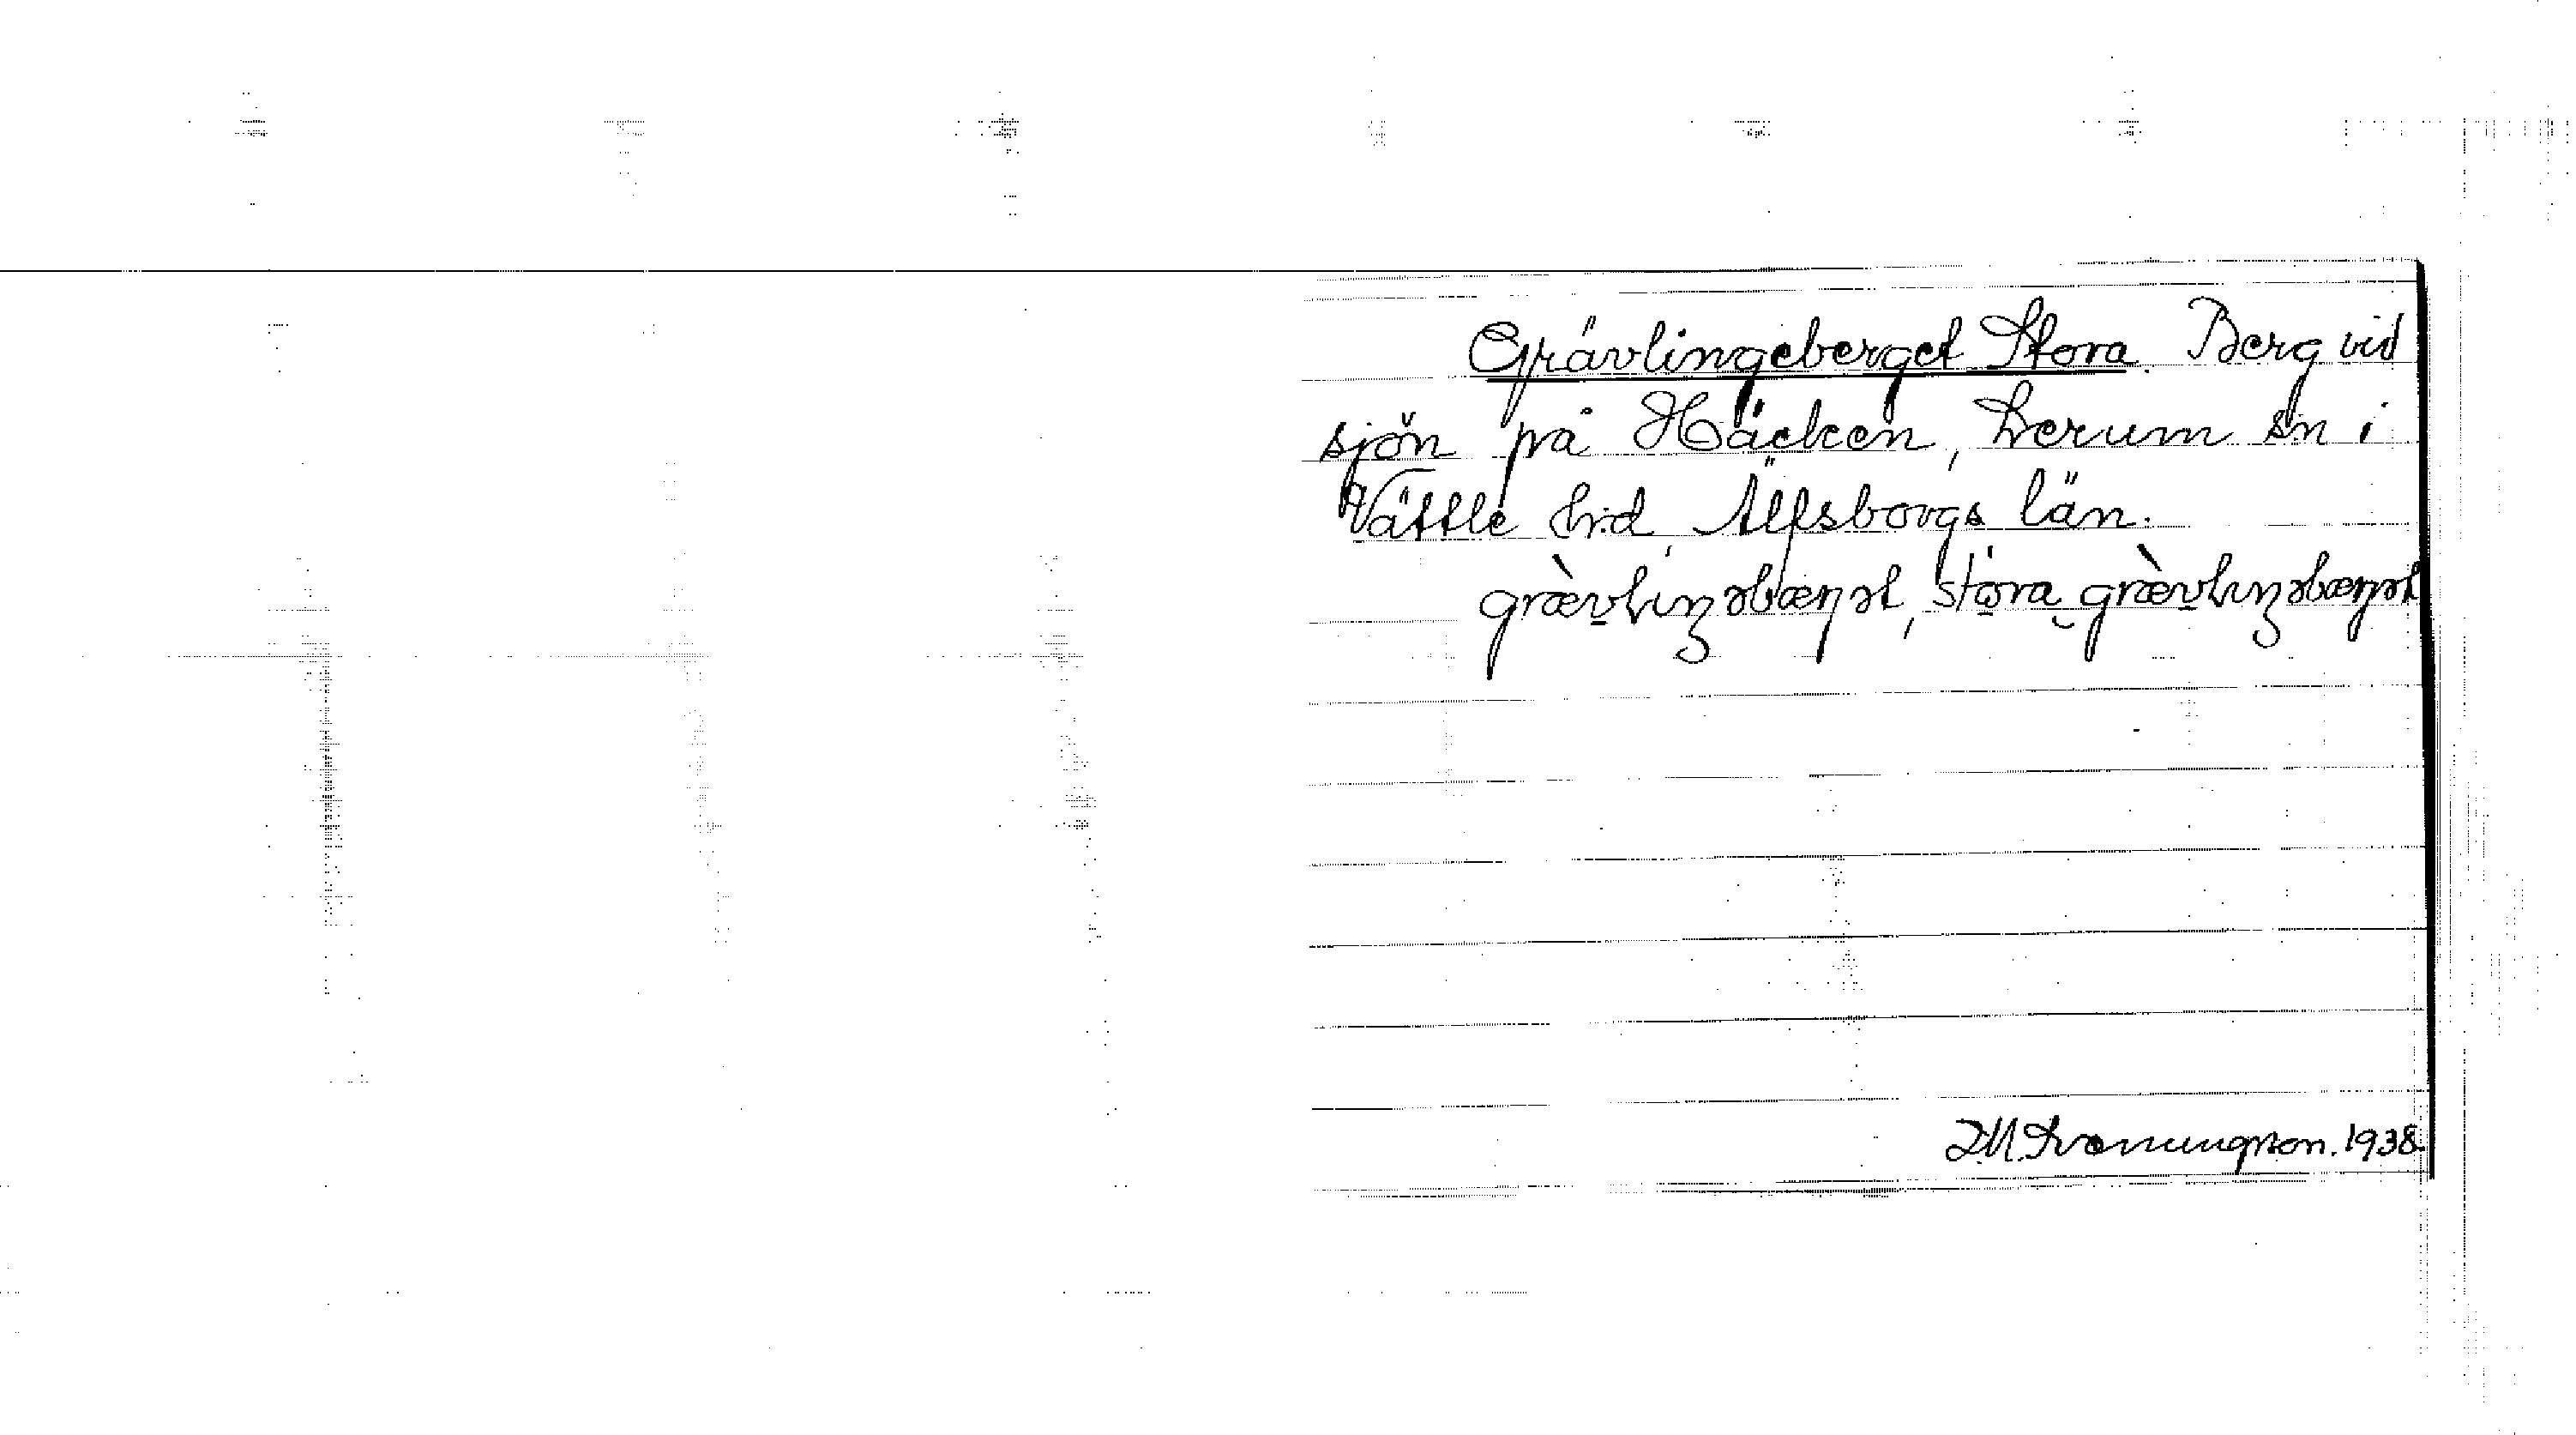 Grävlingeberget Stora. Berg vid
sjön på Häcken, Lerum sn i
Vättle hrd, Älfsborgs län.
grævlıŋəbærjət, stora grævlıŋəbærjət
1938